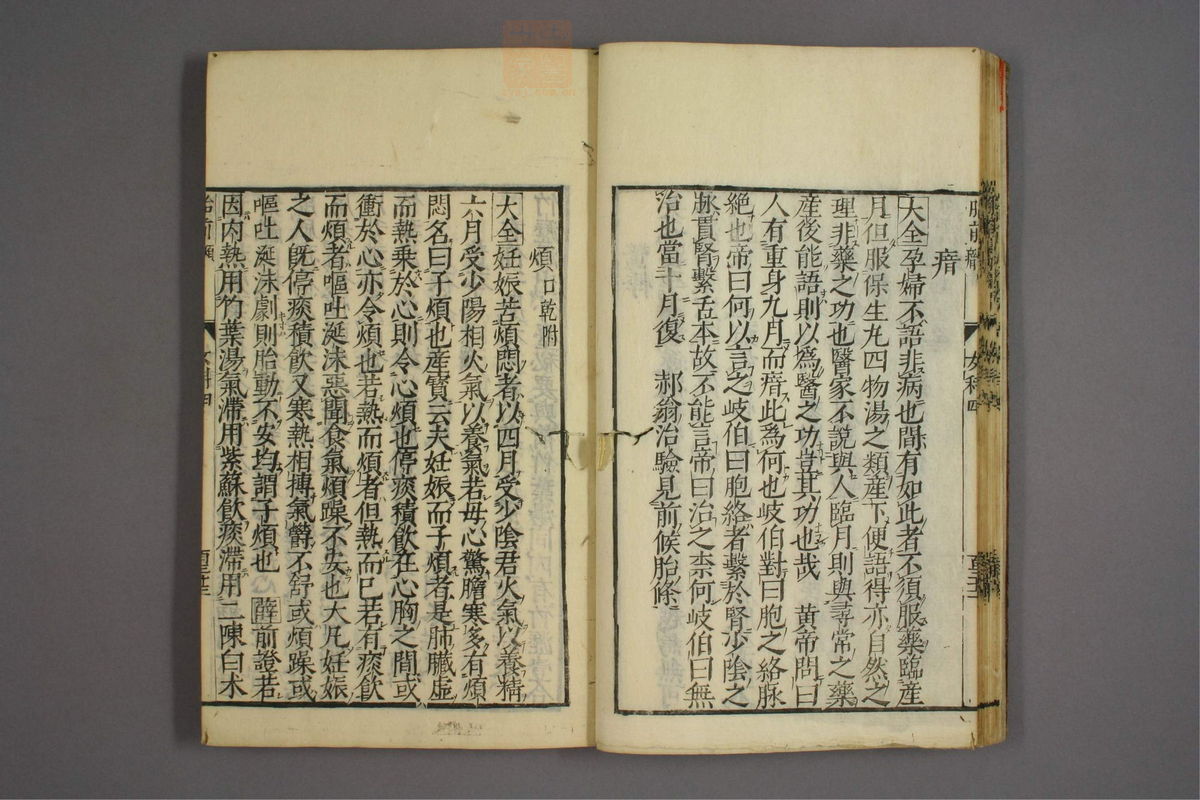 瘖
大全孕婦不語非病也間有如此者不須服藥臨產
月但服保生丸四物湯之類產下便語得亦自然之
理非藥之功也醫家不說與人臨月則與尋常之藥
產後能語則以爲醫之功豈其功也哉　黃帝問曰
人有重身九月而瘖此爲何也岐伯對曰胞之絡脉
絕也帝曰何以言之岐伯曰胞絡者繫於腎少陰之
脉貫腎繫舌本故不能言帝曰治之柰何岐伯曰無
治也當十月復　郝翁治驗見前候胎條
煩口乾附
大全妊娠苦煩悶者以四月受少陰君火氣以養精
六月受少陽相火氣以養氣若母心驚膽寒多有煩
悶名曰子煩也產寶云夫妊娠而子煩者是肺臟虛
而熱乘於心則令心煩也停痰積飲在心胸之間或
衝於心亦令煩也若熱而煩者但熱而已若有痰飲
而煩者嘔吐涎沫惡聞食氣煩躁不安也大凡妊娠
之人旣停痰積飲又寒熱相搏氣鬱不舒或煩躁或
嘔吐涎沫劇則胎動不安均謂子煩也　薛前證若
因內熱用竹葉湯氣滯用紫蘇飲痰滯用二陳白术
胎前煩
女科四